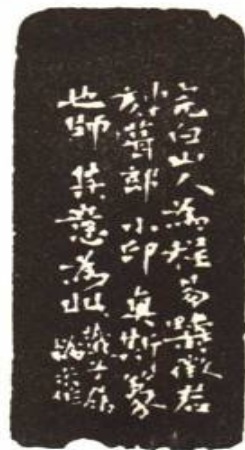 完白山人為程易疇徵君
刻葺郎小印真斯篆
也師其意為此